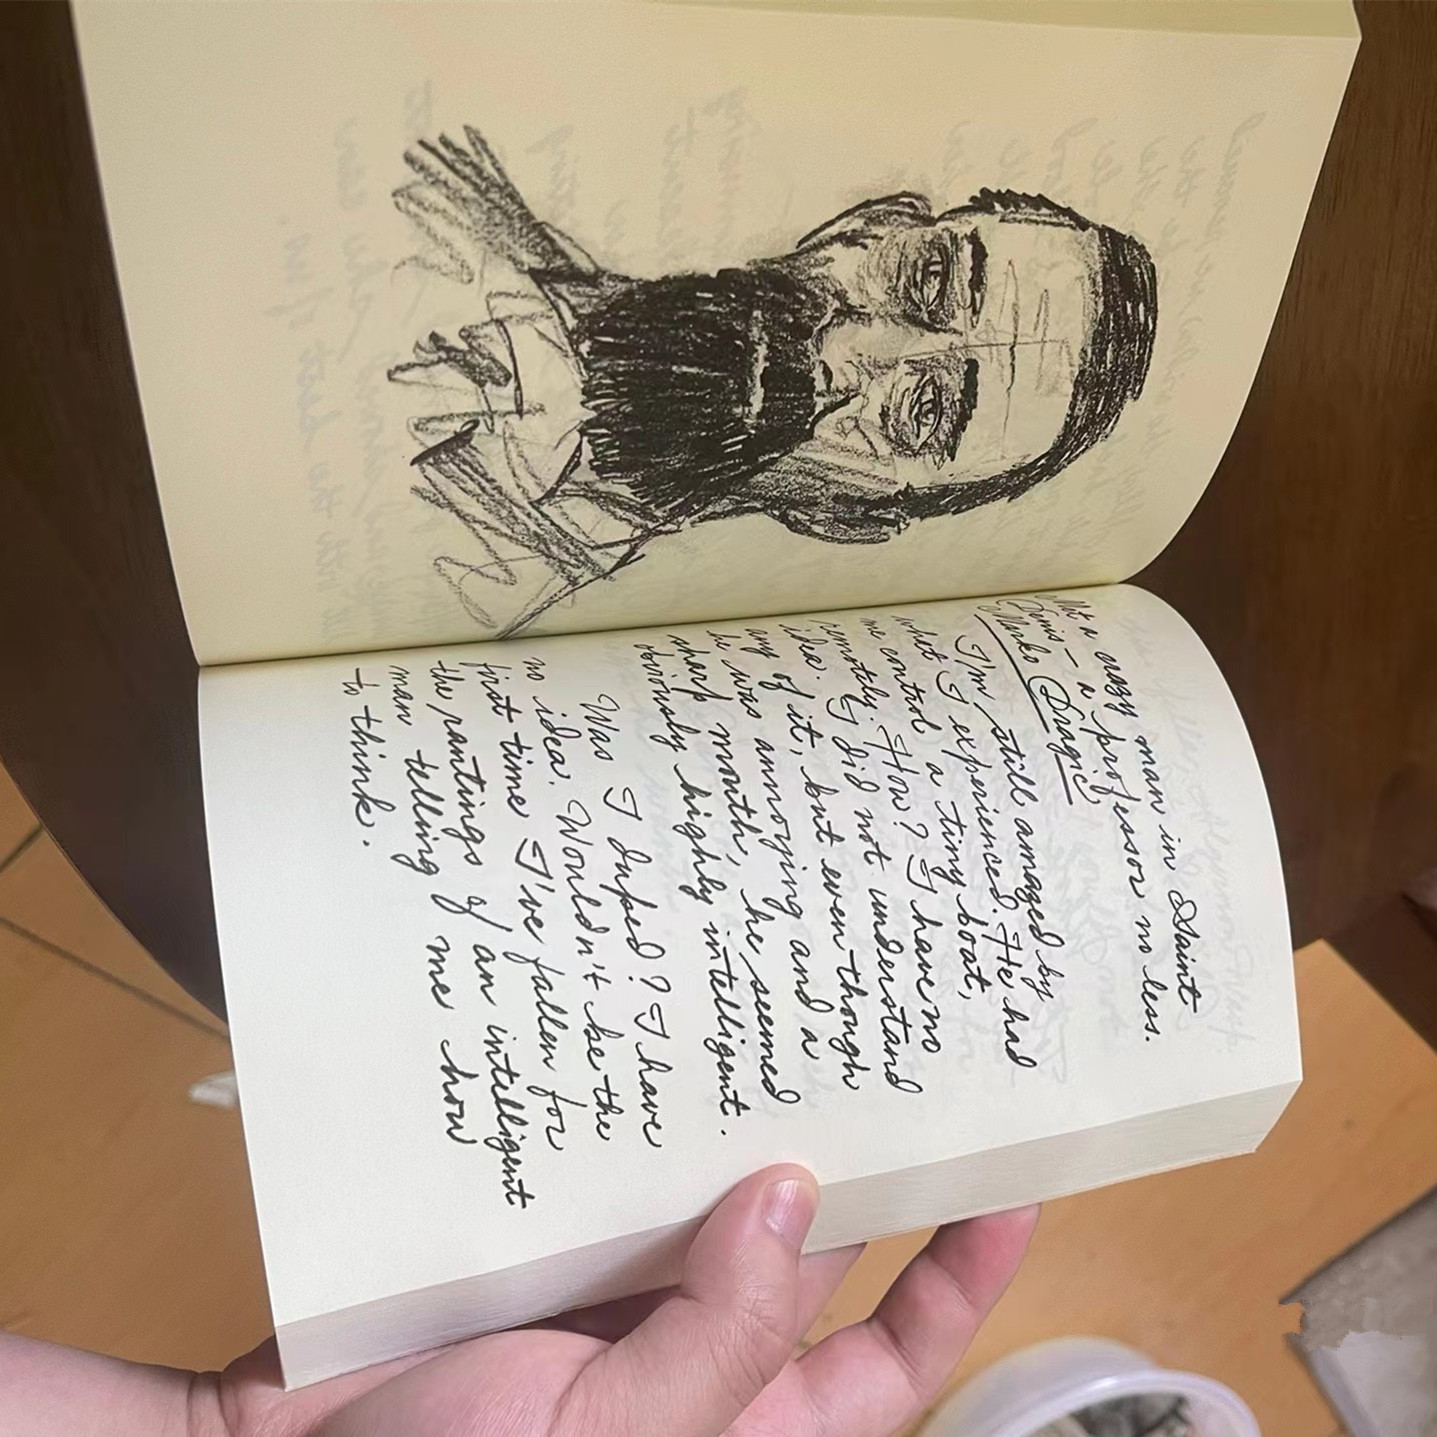 Met a crazy man in Saint
Denis – a professor no less.
Marko Dragic
I'm still amazed by
what I experienced. He had
me control a tiny boat,
remotely. How? I have no
idea. I did not understand
any of it, but even though
he was annoying and a
sharp mouth, he seemed
obviously highly intelligent.
Was I duped? I have
no idea. Wouldn't be the
first time I've fallen for
the rantings of an intelligent
man telling me how
to think.